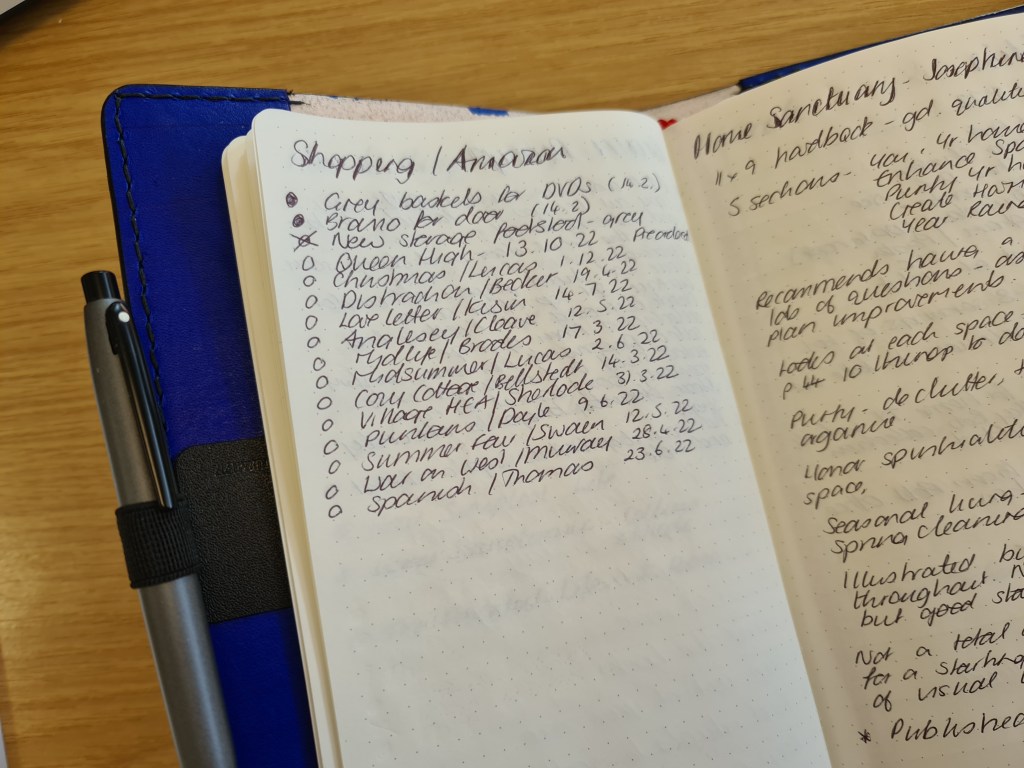 Shopping / Amazon
Grey baskets for DVDs (14.2.)
Brano for door (14.2)
New storage footstool - grey
Queen High - 13.10.22 Preorder
Christmas / Lucas 1.12.22
Distraction / Becker 19.4.22
Love letter / Kisin 14.7.22
Anglesey / Cleeve 12.5.22
Midlife / Brodes 17.3.22
Midsummer / Lucas 2.6.22
Cosy Cottage / Bellstedt 14.3.22
Village HEA / Sherlock 31.3.22
Puritans / Doyle 9.6.22
Summer Fair / Swain 12.5.22
War on West / Murray 28.4.22
Spanish / Thomas 23.6.22
Home Sanctuary - Josephine
11 x 9 hardback - gd. quality
5 sections - You, yr home
Enhance Spa
Purify yr h
Create Harm
Year Roun
Recommends having a
lots of questions - as
plan improvements.
Looks at each space.
p 44 10 things to do
Purify - declutter,
organise.
Honor spirituality
space.
Seasonal living -
Spring cleaning
Illustrated bu
throughout. N
but good sta
Not a total
for a starting
of visual
* Published